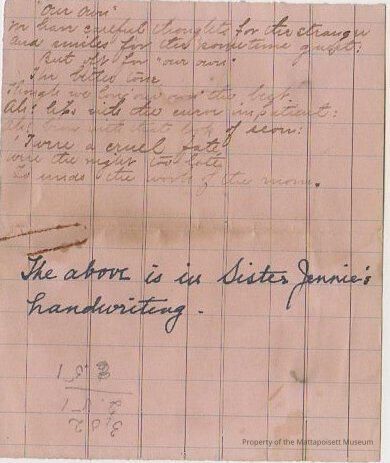 "Our own"
We have careful thoughts for the stranger
And smiles for the sometime guest;
But oft for "our own"
The bitter tone
Though we love our own the best.
Ah! lips with the curve impatient;
Ah! brow with that look of scorn;
'Twere a cruel fate
were the night too late
To undo the work of the morn.
The above is in Sister Jennie's
handwriting.
Property of the Mattapoisett Museum